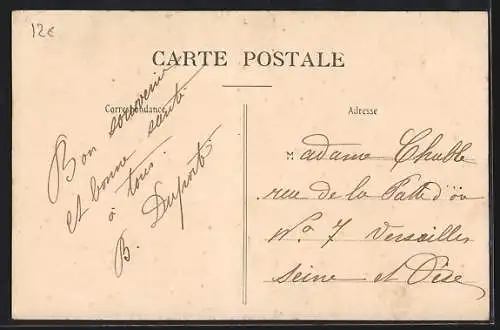 12€
CARTE POSTALE
Correspondance
Bon souvenir
et bonne santé
à tous.
B. Duport
Adresse
Madame Chuble
rue de la Patte d'oie
No 7 Versailles
Seine et Oise